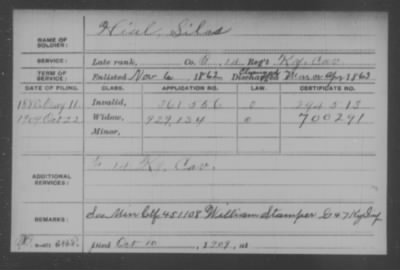 NAME OF SOLDIER: Silas
SERVICE: Late rank, Co. Reg't Ky. Cav
TERM OF SERVICE: Enlisted Nov 6, 1862 Discharged Mar or Apr 1863
DATE OF FILING. CLASS. APPLICATION NO. LAW. CERTIFICATE NO.
Invalid, 294513
Widow, 929,134 700291
Minor,
ADDITIONAL SERVICES: Ky. Cav.
REMARKS: See Min Ctf 451108 William Stamper 47 Ky Inf
Died Oct 10, 1909, at